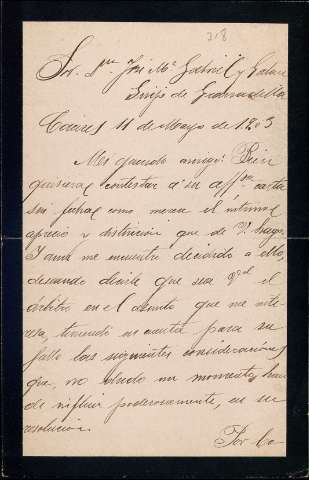 318
Sr. Dn. José Ma. Gabriel y Galan
Guijo de Granadilla
Cáceres 11 de Mayo de 1903
Mi querido amigo: Bien
quisiera contestar a su affma. carta
sin fecha, como merece el íntimo
aprecio y distinción que de V. hago.
Y aun me encuentro decidido a ello,
deseando decirle que sea Vd. el
árbitro en el asunto que me inte-
resa, teniendo en cuenta para su
fallo las siguientes consideraciones
que, no olvido un momento, han
de influir poderosamente, en su
resolución.
Por lo-